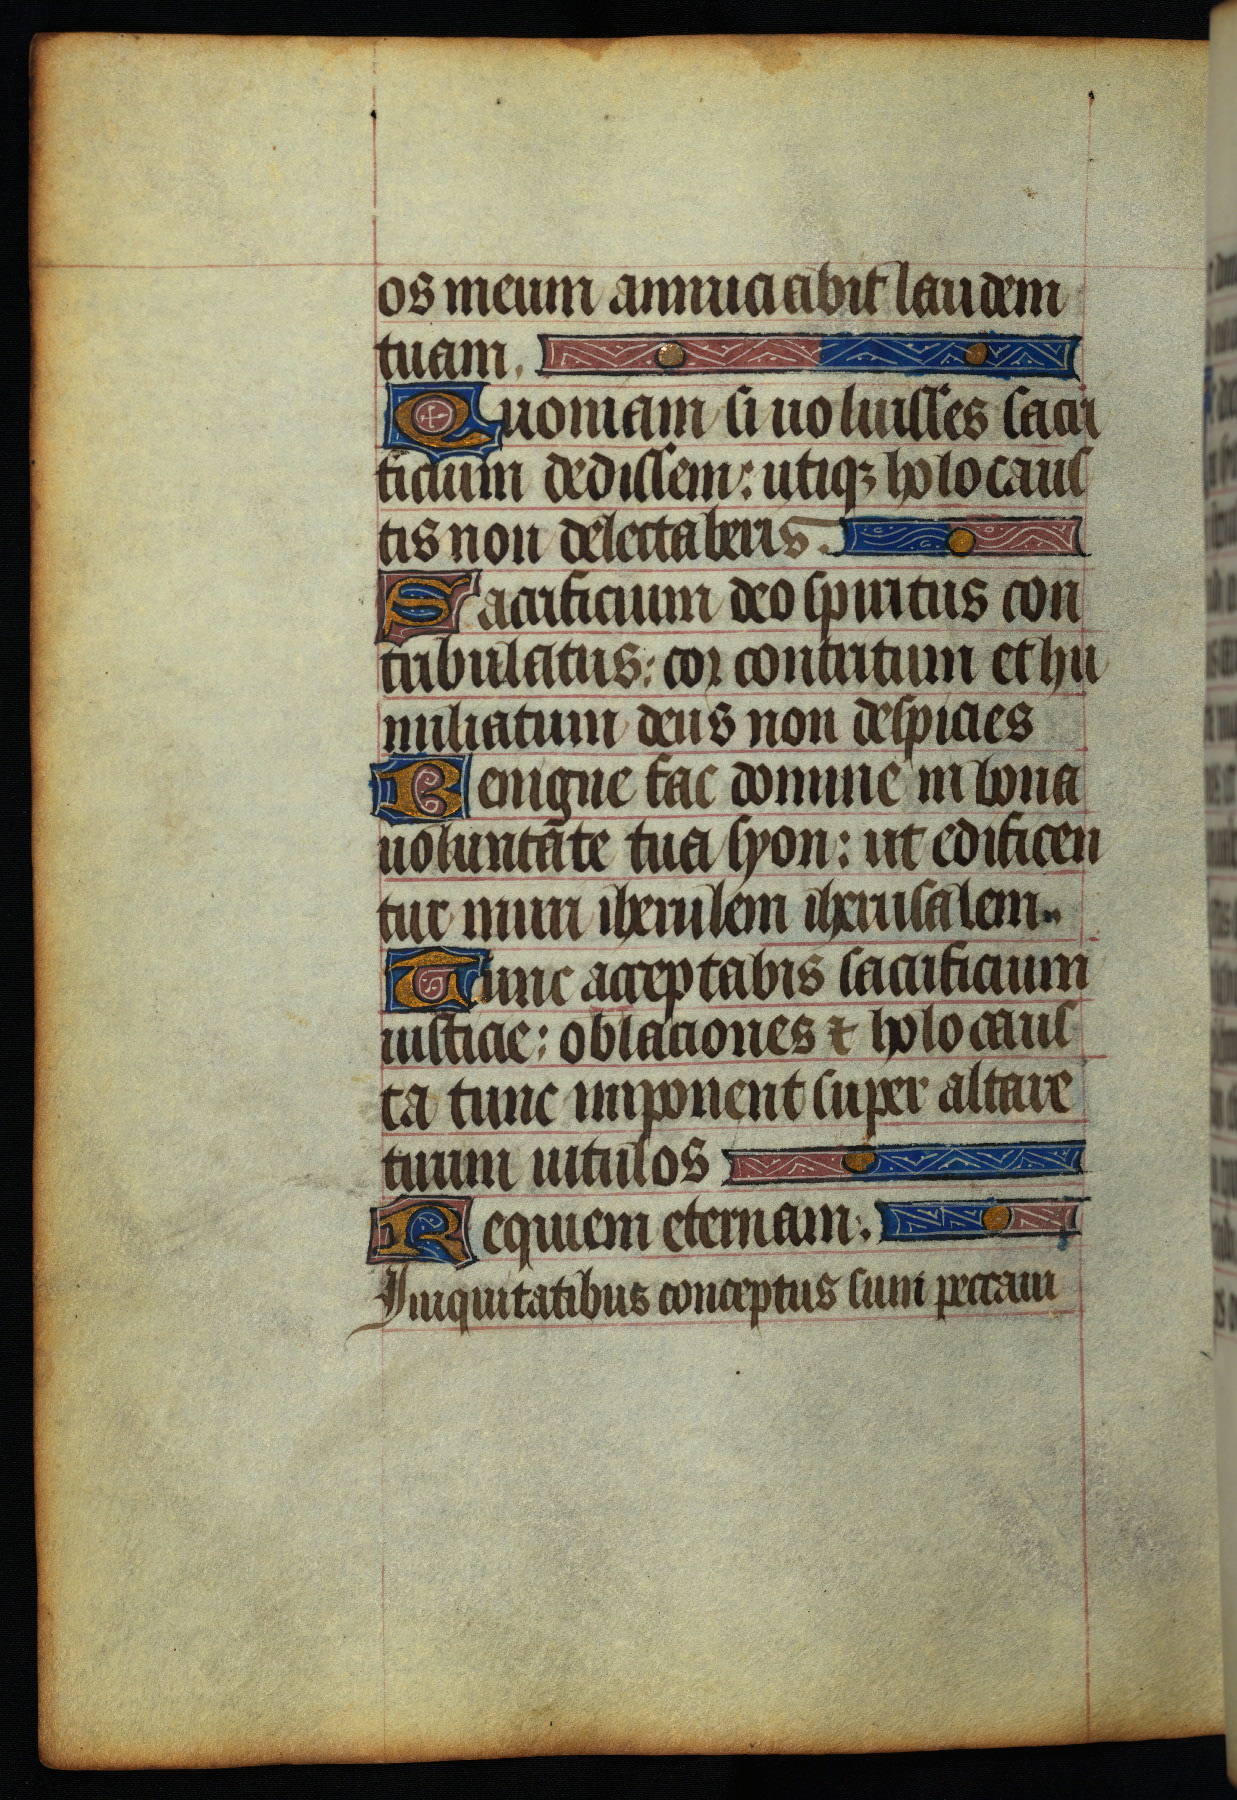 os meum annuciabit laudem
tuam.
Quoniam si uoluisses sacri
ficium dedissem: utiqꝫ holocaus
tis non delectaberis.
Sacrificium deo spiritus con
tribulatus: cor contritum et hu
miliatum deus non despicies
Benigne fac domine in bona
uoluntate tua syon: ut edificen
tur muri iherusalem..
Tunc acceptabis sacrificium
iusticie: oblaciones ⁊ holocaus
ta tunc imponent super altare
tuum uitulos
Requiem eternam.
Iniquitatibus conceptus sum peccaui